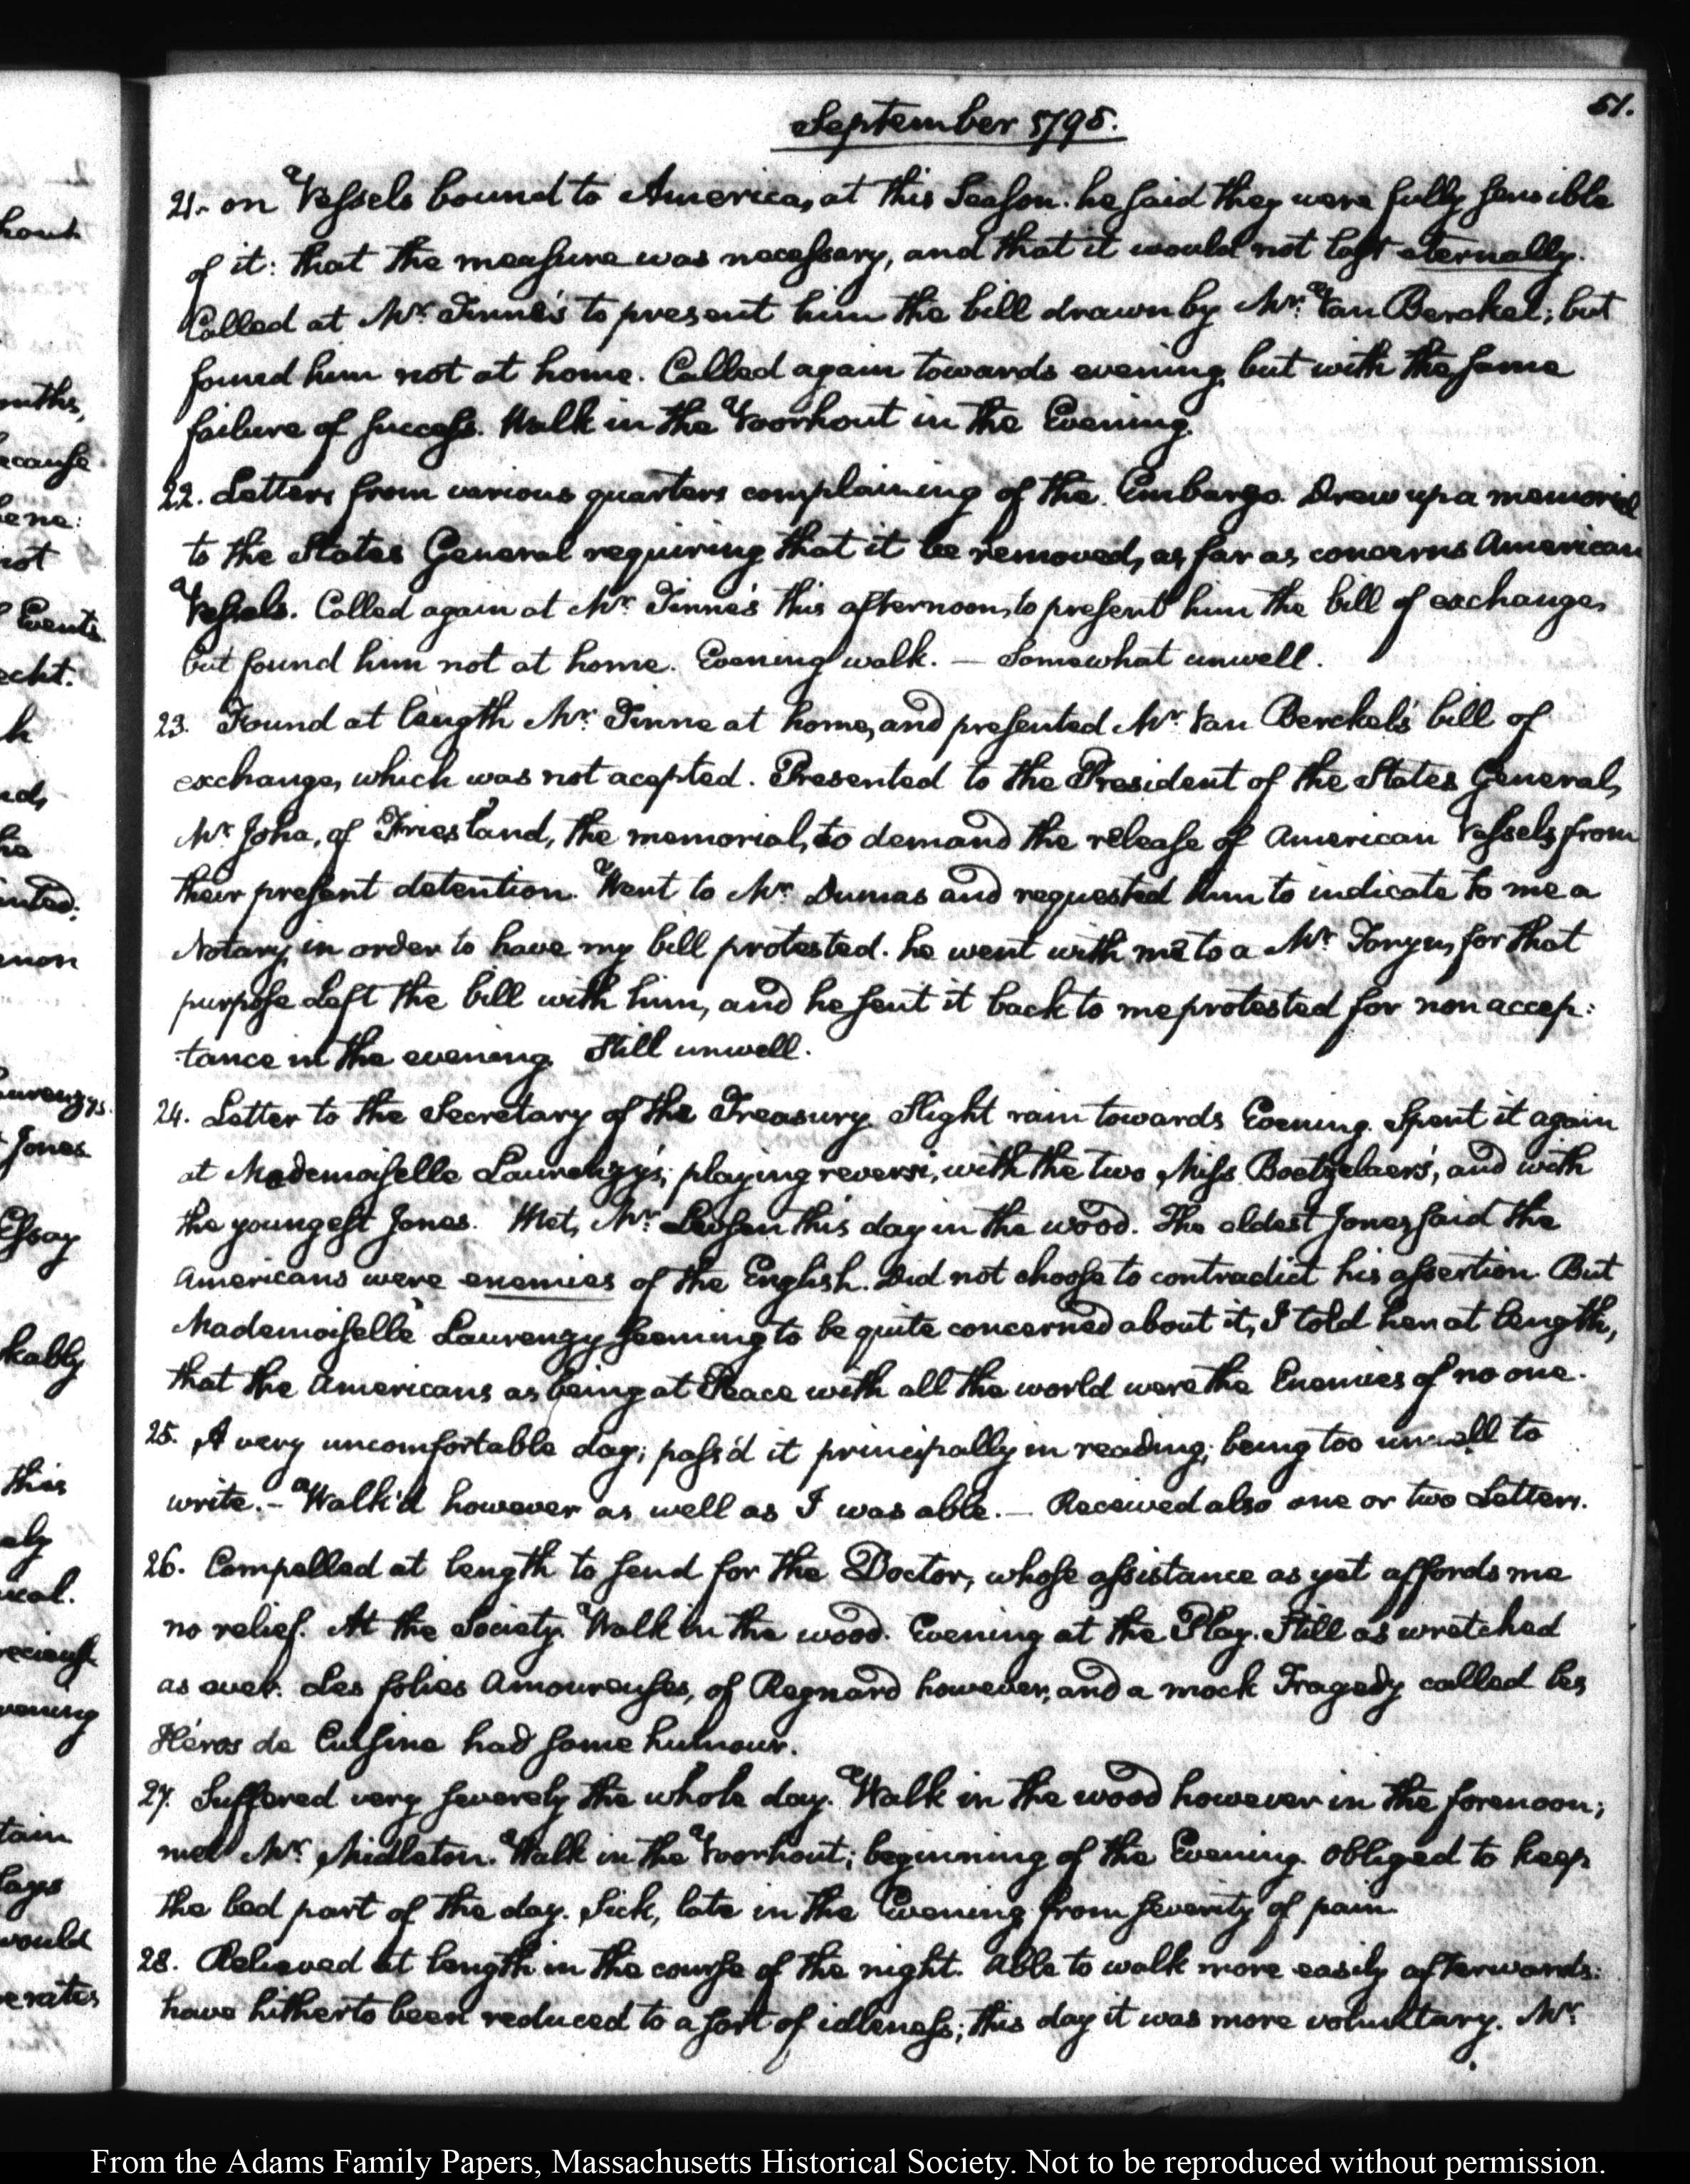 51.
September 1795.
21. on Vessels bound to America, at this Season. he said they were fully sensible
of it: that the measure was necessary, and that it would not last eternally.
Called at Mr. Tinne's to present him the bill drawn by Mr. Van Berckel; but
found him not at home. Called again towards evening but with the same
failure of success. Walk in the Voorhout in the Evening.
22. Letters from various quarters complaining of the Embargo. Drew up a memorial
to the States General requiring that it be removed, as far as concerns American
Vessels. Called again at Mr. Tinne's this afternoon, to present him the bill of exchange,
but found him not at home. Evening walk. — Somewhat unwell.
23. Found at length Mr. Tinne at home, and presented Mr. Van Berckel's bill of
exchange, which was not acepted. Presented to the President of the States General,
Mr. Joha, of Friesland, the memorial, to demand the release of American Vessels from
their present detention. Went to Mr. Dumas and requested him to indicate to me a
Notary, in order to have my bill protested. he went with me to a Mr. for that
purpose Left the bill with him, and he sent it back to me protested for non accep:
tance in the evening. Still unwell.
24. Letter to the Secretary of the Treasury. Slight rain towards Evening. Spent it again
at Mademoiselle Laurenzy's; playing reversi, with the two Miss Boetzelaers', and with
the youngest Jones. Met, Mr. this day in the wood. The eldest Jones, said the
Americans were enemies of the English. Did not choose to contradict his assertion. But
Mademoiselle Laurenzy seeming to be quite concerned about it, I told her at length,
that the Americans as being at Peace with all the world were the Enemies of no one.
25. A very uncomfortable day; pass'd it principally in reading; being too unwell to
write. — Walk'd however as well as I was able. — Received also one or two Letters.
26. Compelled at length to send for the Doctor, whose assistance as yet affords me
no relief. At the Society. Walk in the wood. Evening at the Play. Still as wretched
as ever. Les folies Amoureuses, of Regnard however, and a mock Tragedy called les
Héros de Cuisine had some humour.
27. Suffered very severely the whole day. Walk in the wood however in the forenoon;
met Mr. Midleton. Walk in the Voorhout; beginning of the Evening. Obliged to keep
the bed part of the day. Sick, late in the Evening from severity of pain.
28. Relieved at length in the course of the night. Able to walk more easily afterwards:
have hitherto been reduced to a sort of idleness; this day it was more voluntary. Mr.
From the Adams Family Papers, Massachusetts Historical Society. Not to be reproduced without permission.